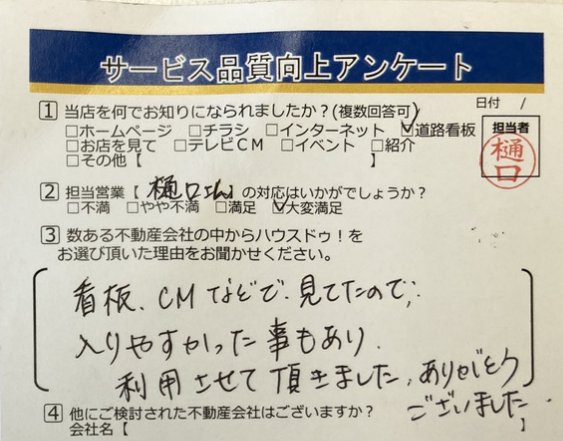 サービス品質向上アンケート
日付 /
1 当店を何でお知りになられましたか？(複数回答可)
□ホームページ □チラシ □インターネット ☑道路看板
□お店を見て □テレビCM □イベント □紹介
□その他【 】
担当者
樋口
2 担当営業【 樋口さん 】の対応はいかがでしょうか？
□不満 □やや不満 □満足 ☑大変満足
3 数ある不動産会社の中からハウスドゥ！を
お選び頂いた理由をお聞かせください。
看板、CMなどで、見てたので、
入りやすかった事もあり、
利用させて頂きました。ありがとう
ございました。
4 他にご検討された不動産会社はございますか？
会社名【 】